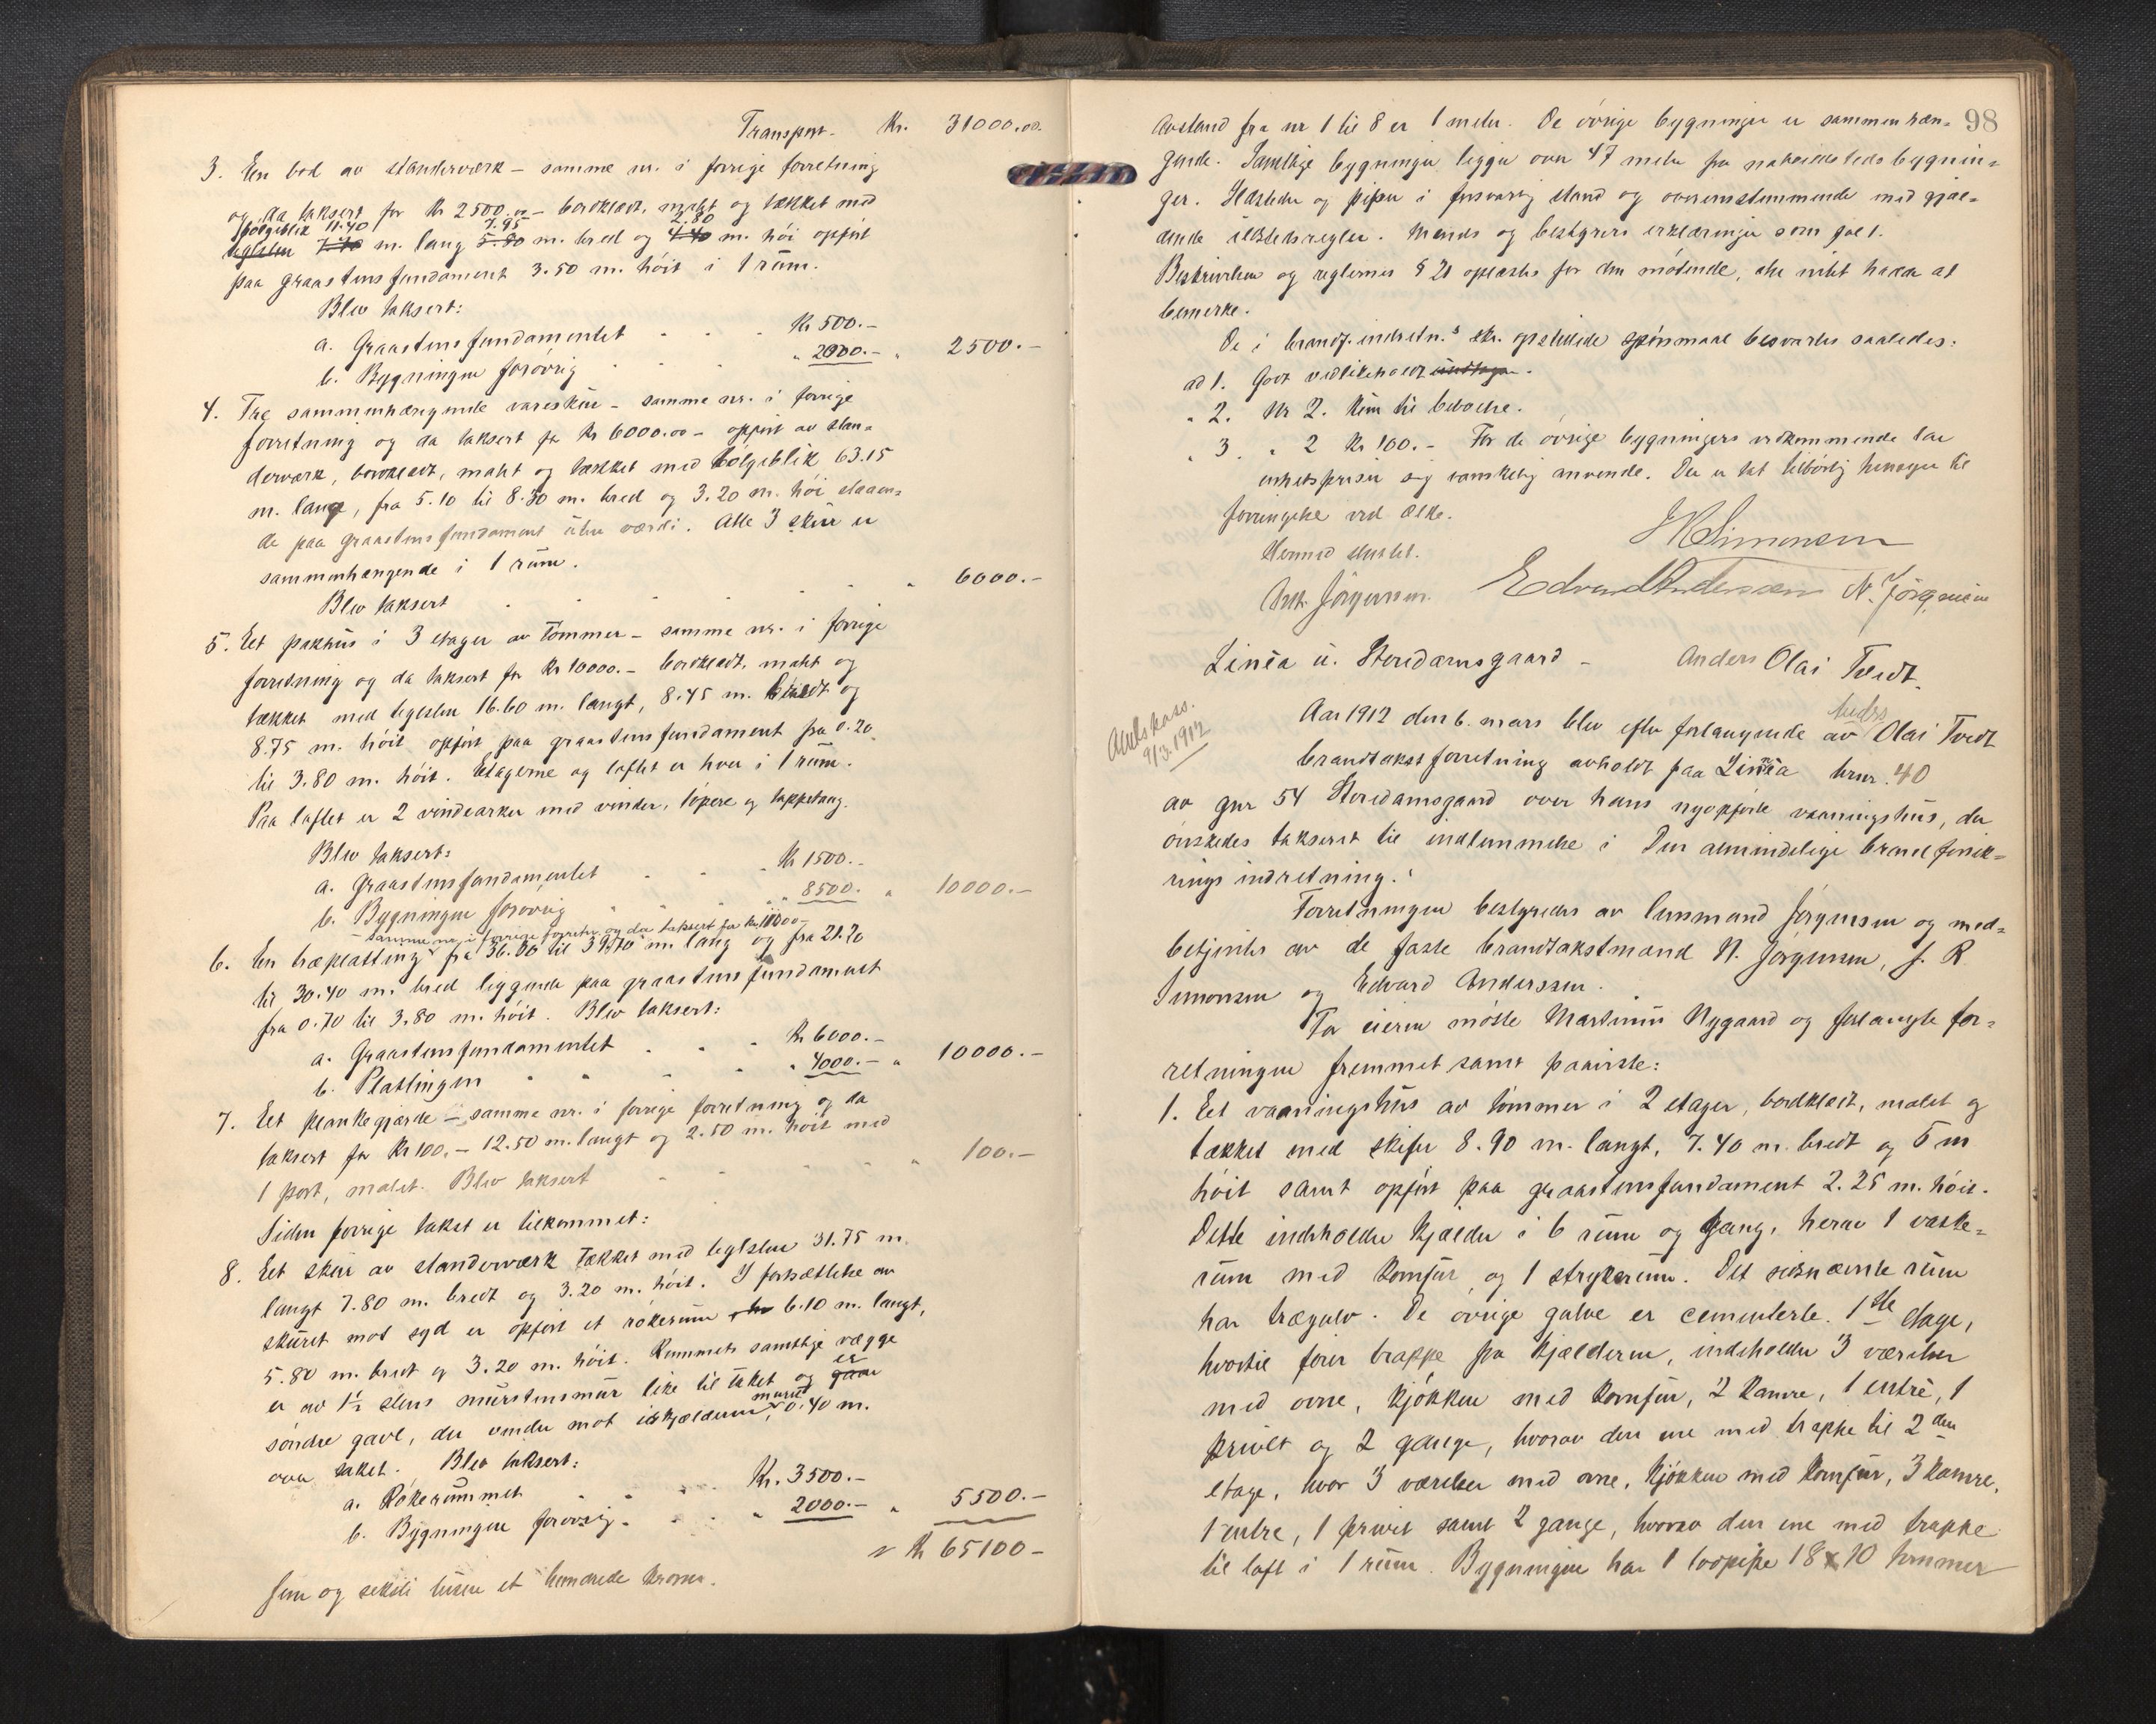 Transport - Kr. 31000.00.
3. En bod av standerværk - samme nr. i forrige forretning
og da taksert for Kr 2500.00 - bordklædt, malt og tækket med
bølgeblik 11.40 7.95 2.80
teglsten 7.40 m. lang 5.80 m. bred og 4.40 m. høi opført
paa graastensfundament 3.50 m. høit i 1 rum.
Blev taksert:
a. Graastensfundamentet Kr 500.-
b. Bygningen forøvrig " 2000.- " 2500.-
4. Tre sammenhængende vareskur - samme nr. i forrige
forretning og da taksert for Kr 6000.00 - opført av stan-
derværk, bordklædt, malt og tækket med bølgeblik 63.15
m. lang, fra 5.10 til 8.30 m. bred og 3.20 m. høi staaen-
de paa graastensfundament uten værdi. Alle 3 skur er
sammenhængende i 1 rum.
Blev taksert " 6000.-
5. Eet pakhus i 3 etager av tømmer - samme nr. i forrige
forretning og da taksert for Kr 10000.- bordklædt, malt og
tækket med teglsten 16.60 m. langt, 8.45 m. bredt og
8.75 m. høit opført paa graastensfundament fra 0.20
til 3.80 m. høit. Etagerne og loftet er hver i 1 rum.
Paa loftet er 2 vindearker med vinder, løpere og tappetaug.
Blev taksert:
a. Graastensfundamentet Kr 1500.-
b. Bygningen forøvrig " 8500. " 10000.-
samme nr. i forrige forretn. og da taksert for Kr 10000-
6. En træplatting fra 36.00 til 39.70 m. lang og fra 21.20
til 30.40 m. bred liggende paa graastensfundament
fra 0.70 til 3.80 m. høit. Blev taksert:
a. Graastensfundamentet Kr 6000.-
b. Plattingen " 4000.- " 10000.-
7. Eet plankegjærde - samme nr. i forrige forretning og da
taksert for Kr 100.- 12.50 m. langt og 2.50 m. høit med
1 port, malet. Blev taksert " 100.-
Siden forrige takst er tilkommet:
8. Eet skur av standerværk tækket med teglsten 31.75 m.
langt 7.80 m. bredt og 3.20 m. høit. I fortsættelse av
skuret mot syd er opført et røkerum 6.10 m. langt,
5.80 m. bredt og 3.20 m. høit. Rummets samtlige vægge
er av 1½ stens murstensmur like til taket og gaar er
søndre gavl, der vender mot iskjælderen, muret 0.40 m.
over taket. Blev taksert:
a. Røkerummet Kr. 3500.-
b. Bygningen forøvrig " 2000.- " 5500.-
Kr 65100-
Fem og seksti tusen et hundrede kroner.
98
Avstand fra nr 1 til 8 er 1 meter. De øvrige bygninger er sammenhæn-
gende. Samtlige bygninger ligger over 47 meter fra nabo bygnin-
ger. Ildsteder og piper i forsvarlig stand og overensstemmende med gjæl-
dende ildstedsregler. Mænds og bestyrers erklæringer som fol 1.
Beskrivelsen og reglernes § 21 oplæstes for den møtende, der intet hadde at
bemerke.
De i brandf.indretn.s skr. opstillede spørsmaal besvartes saaledes:
ad 1. Godt vedlikeholdt undtagen.
" 2. Nr 2. Kun til beboelse.
" 3. " 2 Kr 100.- For de øvrige bygningers vedkommende lar
enhetspriser sig vanskelig anvende. Der er tat tilbørlig hensyn til
forringelse ved ælde.
Hermed sluttet.
J R Simonsen
Ant. Jørgensen. Edvard Anderssen N. Jørgensen
Linéa u. Storedamsgaard - Anders Olai Tvedt.
Amtskass. 9/3. 1912
Aar 1912 den 6. mars blev efter forlangende av Anders Olai Tvedt
brandtakstforretning avholdt paa Linéa brnr. 40
av gnr 54 Storedamsgaard over hans nyopførte vaaningshus, der
ønskedes taksert til indlemmelse i Den almindelige brandforsik-
rings indretning.
Forretningen bestyredes av lensmand Jørgensen og med-
betjentes av de faste brandtakstmænd N. Jørgensen, J. R
Simonsen og Edvard Anderssen.
For eieren møtte Martinus Nygaard og forlangte for-
retningen fremmet samt paaviste:
1. Eet vaaningshus av tømmer i 2 etager, bordklædt, malet og
tækket med skifer 8.90 m. langt, 7.40 m. bredt og 5 m
høit samt opført paa graastensfundament 2.25 m. høit.
Dette indeholder kjælder i 6 rum og gang, herav 1 vaske-
rum med komfur og 1 strykerum. Det sidstnævnte rum
har trægulv. De øvrige gulve er cementerte. 1ste etage,
hvortil fører trappe fra kjælderen, indeholder 3 værelser
med ovne, kjøkken med komfur, 2 kamre, 1 entré, 1
privet og 2 gange, hvorav den ene med trappe til 2den
etage, hvor 3 værelser med ovne, kjøkken med komfur, 3 kamre,
1 entre, 1 privet samt 2 gange, hvorav den ene med trappe
til loft i 1 rum. Bygningen har 1 toppipe 18 x 10 tommer